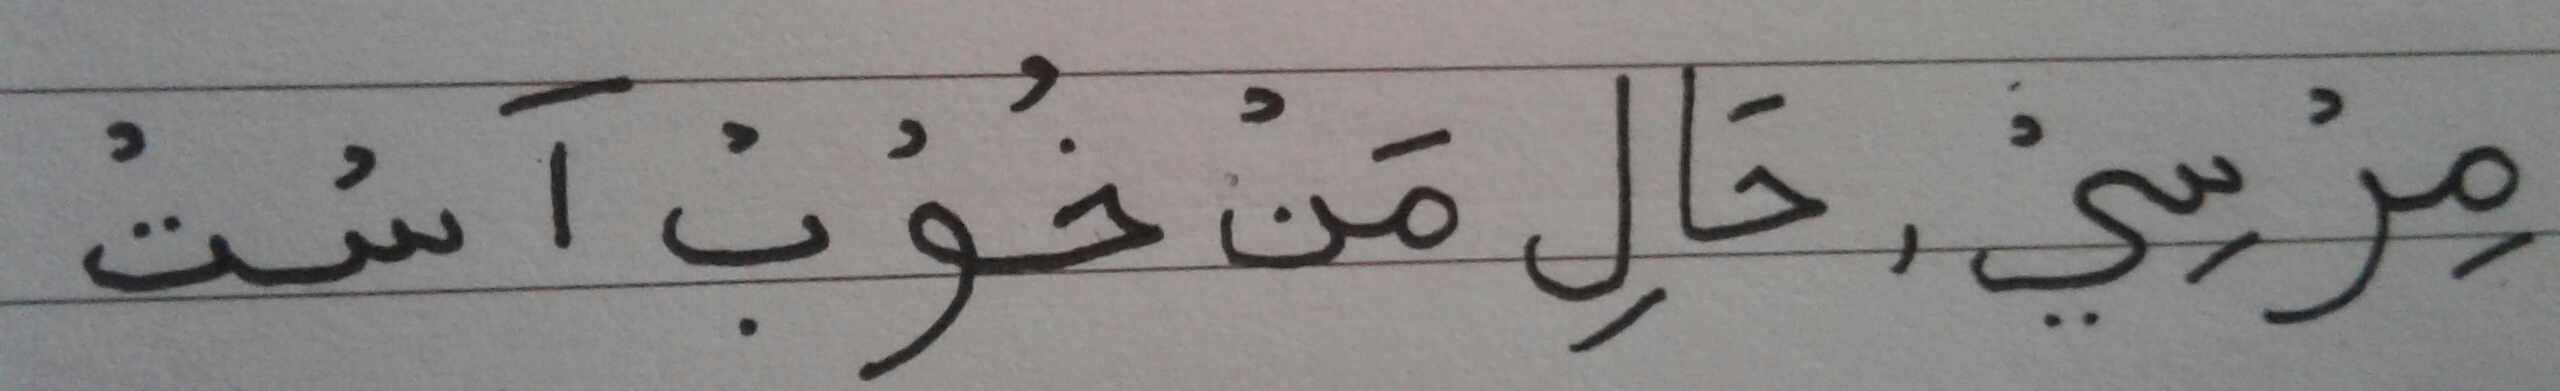 مِرْسِيْ, حَالِ مَنْ خُوْبْ اَسْتْ